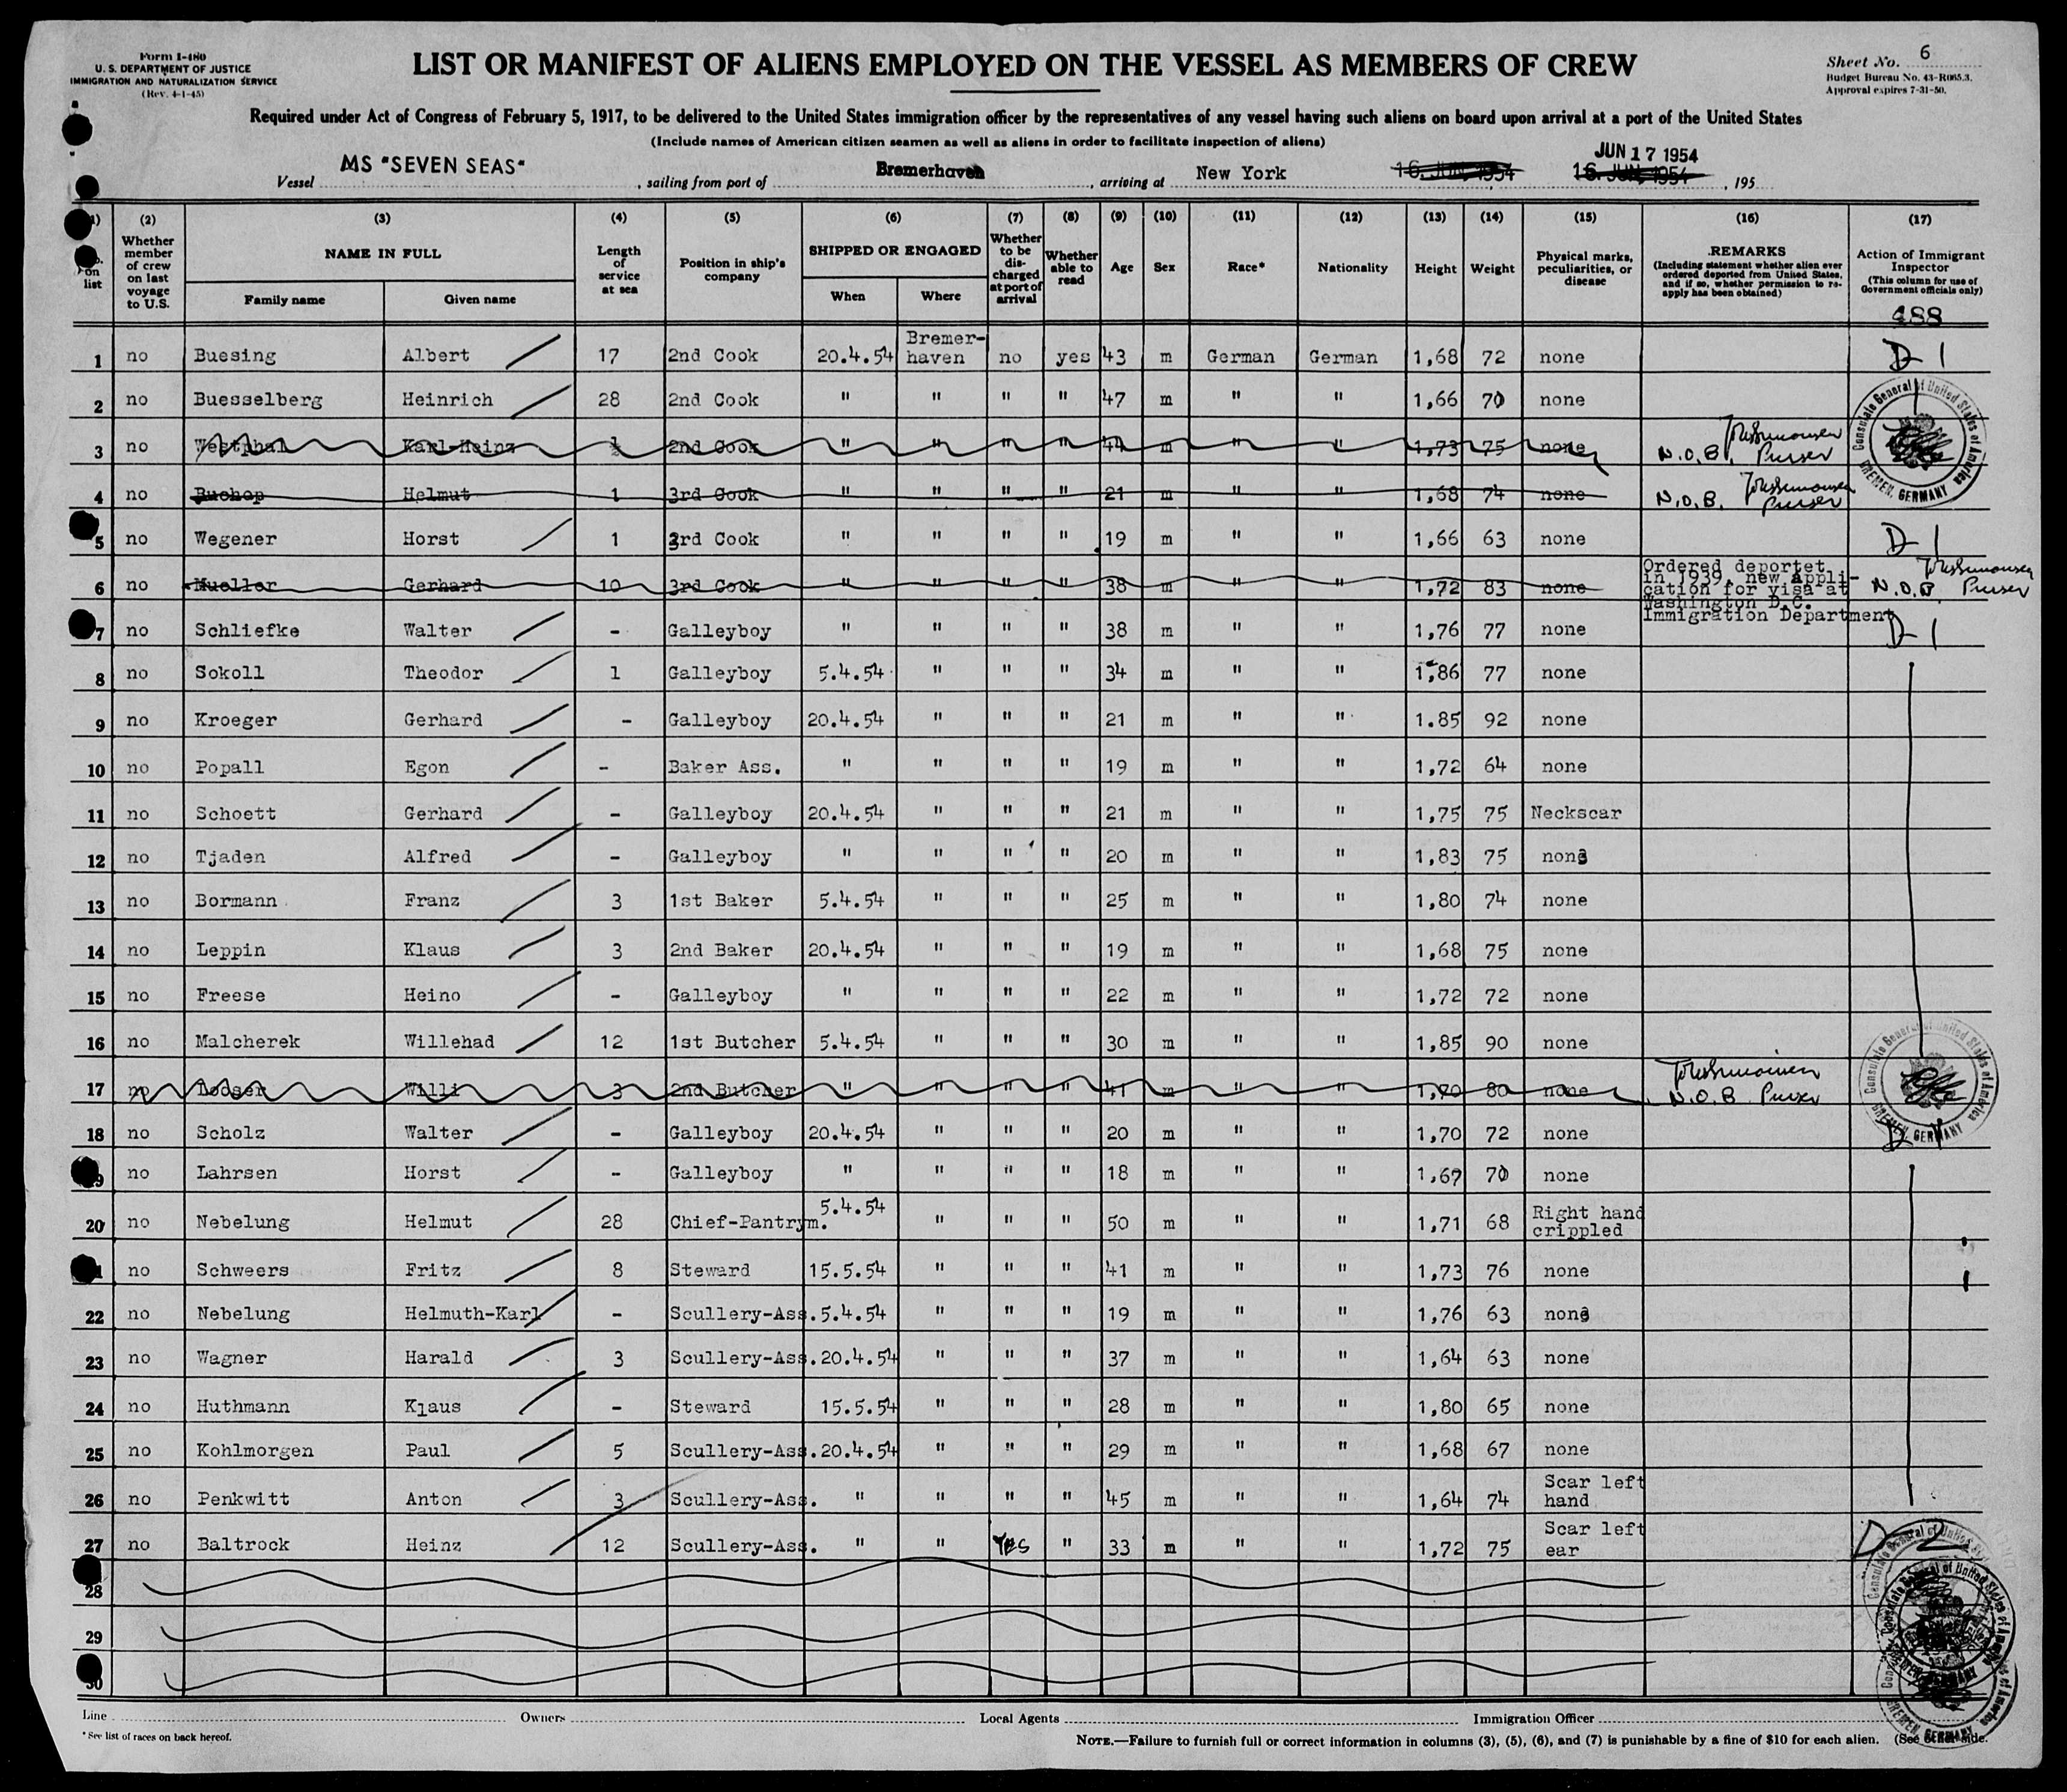 Form I-480
U. S. DEPARTMENT OF JUSTICE
IMMIGRATION AND NATURALIZATION SERVICE
(Rev. 4-1-45)
LIST OR MANIFEST OF ALIENS EMPLOYED ON THE VESSEL AS MEMBERS OF CREW
Sheet No. 6
Budget Bureau No. 43-R065.3.
Approval expires 7-31-50.
Required under Act of Congress of February 5, 1917, to be delivered to the United States immigration officer by the representatives of any vessel having such aliens on board upon arrival at a port of the United States
(Include names of American citizen seamen as well as aliens in order to facilitate inspection of aliens)
JUN 17 1954
Vessel MS "SEVEN SEAS" , sailing from port of Bremerhaven , arriving at New York 16. JUN. 1954 16. JUN. 1954 , 195
(2) (3) (4) (5) (6) (7) (8) (9) (10) (11) (12) (13) (14) (15) (16) (17)
on list
Whether member of crew on last voyage to U.S.
NAME IN FULL
Family name Given name
Length of service at sea
Position in ship's company
SHIPPED OR ENGAGED
When Where
Whether to be discharged at port of arrival
Whether able to read
Age Sex Race* Nationality Height Weight
Physical marks, peculiarities, or disease
REMARKS
(Including statement whether alien ever ordered deported from United States, and if so, whether permission to re-apply has been obtained)
Action of Immigrant Inspector
(This column for use of Government officials only)
488
1 no Buesing Albert 17 2nd Cook 20.4.54 Bremer-haven no yes 43 m German German 1,68 72 none D-1
2 no Buesselberg Heinrich 28 2nd Cook " " " " 47 m " " 1,66 70 none
3 no Westphal Karl-Heinz 1 2nd Cook " " " " 44 m " " 1,73 75 none N.O.B. Purser
4 no Buchop Helmut 1 3rd Cook " " " " 21 m " " 1,68 74 none N.O.B. Purser
5 no Wegener Horst 1 3rd Cook " " " " 19 m " " 1,66 63 none D-1
6 no Mueller Gerhard 10 3rd Cook " " " " 38 m " " 1,72 83 none Ordered deportet in 1939, new appli-cation for visa at Washington D.C. Immigration Department N.O.B. Purser
7 no Schliefke Walter - Galleyboy " " " " 38 m " " 1,76 77 none D-1
8 no Sokoll Theodor 1 Galleyboy 5.4.54 " " " 34 m " " 1,86 77 none
9 no Kroeger Gerhard - Galleyboy 20.4.54 " " " 21 m " " 1.85 92 none
10 no Popall Egon - Baker Ass. " " " " 19 m " " 1,72 64 none
11 no Schoett Gerhard - Galleyboy 20.4.54 " " " 21 m " " 1,75 75 Neckscar
12 no Tjaden Alfred - Galleyboy " " " " 20 m " " 1,83 75 none
13 no Bormann Franz 3 1st Baker 5.4.54 " " " 25 m " " 1,80 74 none
14 no Leppin Klaus 3 2nd Baker 20.4.54 " " " 19 m " " 1,68 75 none
15 no Freese Heino - Galleyboy " " " " 22 m " " 1,72 72 none
16 no Malcherek Willehad 12 1st Butcher 5.4.54 " " " 30 m " " 1,85 90 none
17 no Looser Willi 3 2nd Butcher " " " " 41 m " " 1,70 80 none N.O.B Purser
18 no Scholz Walter - Galleyboy 20.4.54 " " " 20 m " " 1,70 72 none
no Lahrsen Horst - Galleyboy " " " " 18 m " " 1,67 70 none
20 no Nebelung Helmut 28 Chief-Pantrym. 5.4.54 " " " 50 m " " 1,71 68 Right hand crippled
no Schweers Fritz 8 Steward 15.5.54 " " " 41 m " " 1,73 76 none
22 no Nebelung Helmuth-Karl - Scullery-Ass. 5.4.54 " " " 19 m " " 1,76 63 none
23 no Wagner Harald 3 Scullery-Ass. 20.4.54 " " " 37 m " " 1,64 63 none
24 no Huthmann Klaus - Steward 15.5.54 " " " 28 m " " 1,80 65 none
25 no Kohlmorgen Paul 5 Scullery-Ass. 20.4.54 " " " 29 m " " 1,68 67 none
26 no Penkwitt Anton 3 Scullery-Ass. " " " " 45 m " " 1,64 74 Scar left hand
27 no Baltrock Heinz 12 Scullery-Ass. " " YES " 33 m " " 1,72 75 Scar left ear D-2
28
29
30
Consulate General of United States of America BREMEN, GERMANY
Line Owners Local Agents Immigration Officer
* See list of races on back hereof.
NOTE.—Failure to furnish full or correct information in columns (3), (5), (6), and (7) is punishable by a fine of $10 for each alien. (See other side.